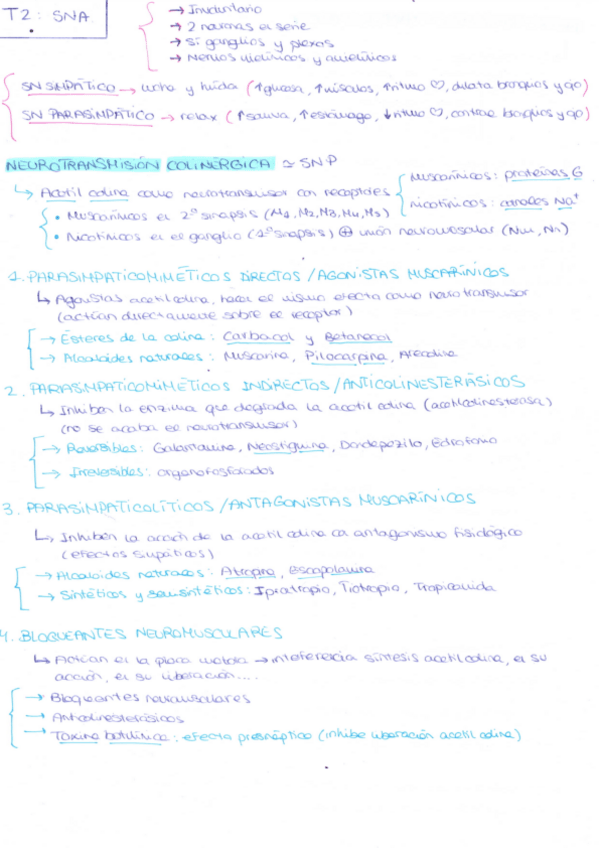 T2: SNA
→ Involuntario
→ 2 neuronas en serie
→ Sí ganglios y plexos
→ Nervios mielínicos y amielínicos
SN SIMPÁTICO → lucha y huida (↑glucosa, ↑músculos, ↑ritmo ♡, dilata bronquios y ojo)
SN PARASIMPÁTICO → relax (↑saliva, ↑estómago, ↓ritmo ♡, contrae bronquios y ojo)
NEUROTRANSMISIÓN COLINÉRGICA ≃ SNP
↳ Acetil colina como neurotransmisor con receptores
Muscarínicos: proteínas G
nicotínicos: canales Na+
• Muscarínicos en 2º sinapsis (M1, M2, M3, M4, M5)
• Nicotínicos en el ganglio (1º sinapsis) ⊕ unión neuromuscular (Nm, Nn)
1. PARASIMPATICOMIMÉTICOS DIRECTOS / AGONISTAS MUSCARÍNICOS
↳ Agonistas acetilcolina, hacen el mismo efecto como neurotransmisor
(actúan directamente sobre el receptor)
→ Ésteres de la colina: Carbacol y Betanecol
→ Alcaloides naturales: Muscarina, Pilocarpina, Arecolina
2. PARASIMPATICOMIMÉTICOS INDIRECTOS / ANTICOLINESTERÁSICOS
↳ Inhiben la enzima que degrada la acetil colina (acetilcolinesterasa)
(no se acaba el neurotransmisor)
→ Reversibles: Galantamina, Neostigmina, Donepezilo, Edrofonio
→ Irreversibles: organofosforados
3. PARASIMPATICOLÍTICOS / ANTAGONISTAS MUSCARÍNICOS
↳ Inhiben la acción de la acetil colina con antagonismo fisiológico
(efectos simpáticos)
→ Alcaloides naturales: Atropina, Escopolamina
→ Sintéticos y semisintéticos: Ipratropio, Tiotropio, Tropicamida
4. BLOQUEANTES NEUROMUSCULARES
↳ Actúan en la placa motora → interferencia síntesis acetil colina, en su
acción, en su liberación....
→ Bloqueantes neuromusculares
→ Anticolinesterásicos
→ Toxina botulínica: efecto presináptico (inhibe liberación acetil colina)